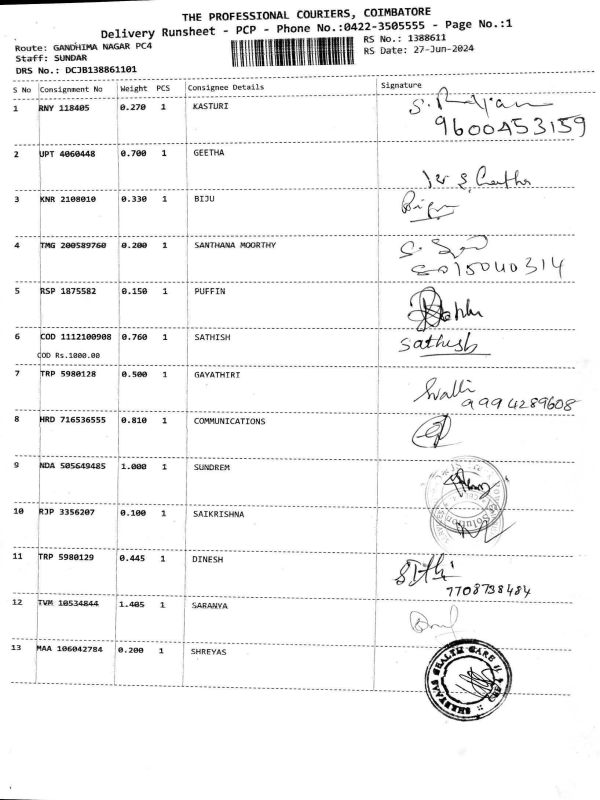 THE PROFESSIONAL COURIERS, COIMBATORE
Delivery Runsheet - PCP - Phone No.:0422-3505555 - Page No.:1
Route: GANDHIMA NAGAR PC4
RS No.: 1388611
Staff: SUNDAR
RS Date: 27-Jun-2024
DRS No.: DCJB138861101
S No Consignment No Weight PCS Consignee Details Signature
1 RNY 118405 0.270 1 KASTURI
9600453159
2 UPT 4060448 0.700 1 GEETHA
3 KNR 2108010 0.330 1 BIJU
4 TMG 200589760 0.200 1 SANTHANA MOORTHY
5 RSP 1875582 0.150 1 PUFFIN
6 COD 1112100908 0.760 1 SATHISH Sathish
COD Rs.1000.00
7 TRP 5980128 0.500 1 GAYATHIRI Valli
9994289608
8 HRD 716536555 0.810 1 COMMUNICATIONS
9 NDA 505649485 1.000 1 SUNDREM
10 RJP 3356207 0.100 1 SAIKRISHNA
11 TRP 5980129 0.445 1 DINESH
7708738484
12 TVM 10534844 1.405 1 SARANYA
13 MAA 106042784 0.200 1 SHREYAS
HEALTH CARE